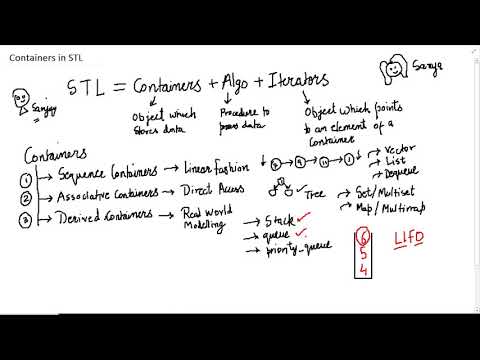 Containers in STL
Sanjay
STL = Containers + Algo + Iterators
Sanya
Object which
stores data
Procedure to
process data
Object which points
to an element of a
Container
Containers
1 Sequence Containers → Linear Fashion
→ Vector
→ List
→ Dequeue
2 Associative Containers → Direct Access
Tree
→ Set/Multiset
→ Map/Multimap
3 Derived Containers → Real World
Modelling
→ Stack ✓
→ queue ✓
→ priority_queue
6
5
4
LIFO